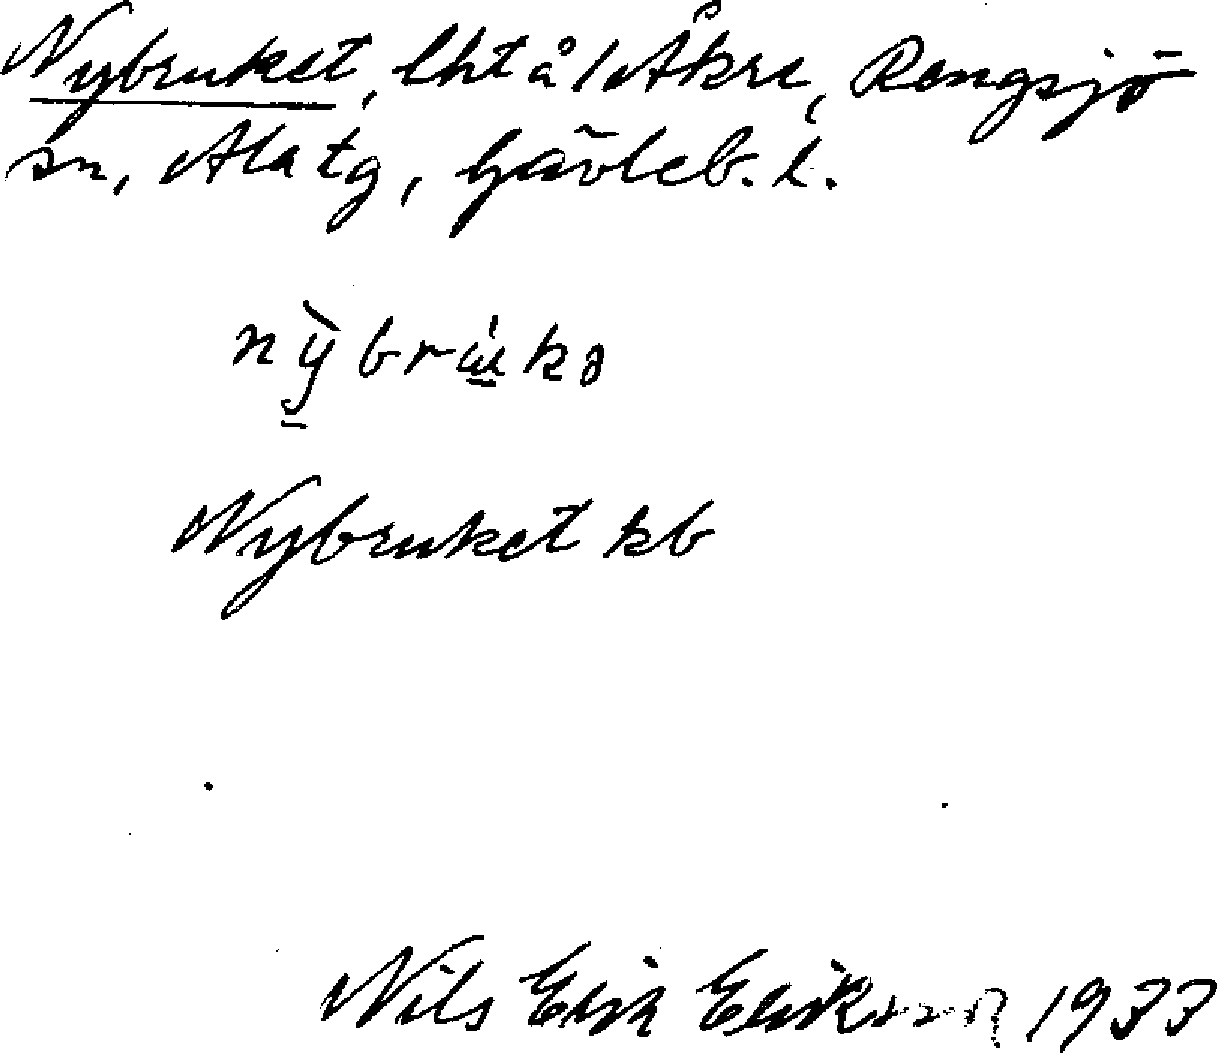 Nybruket, lht å 1 Åkre, Rengsjö
sn, Ala tg, Gävleb. l.
nỳbrúkə
Nybruket kb
Nils Erik Eriksson 1933